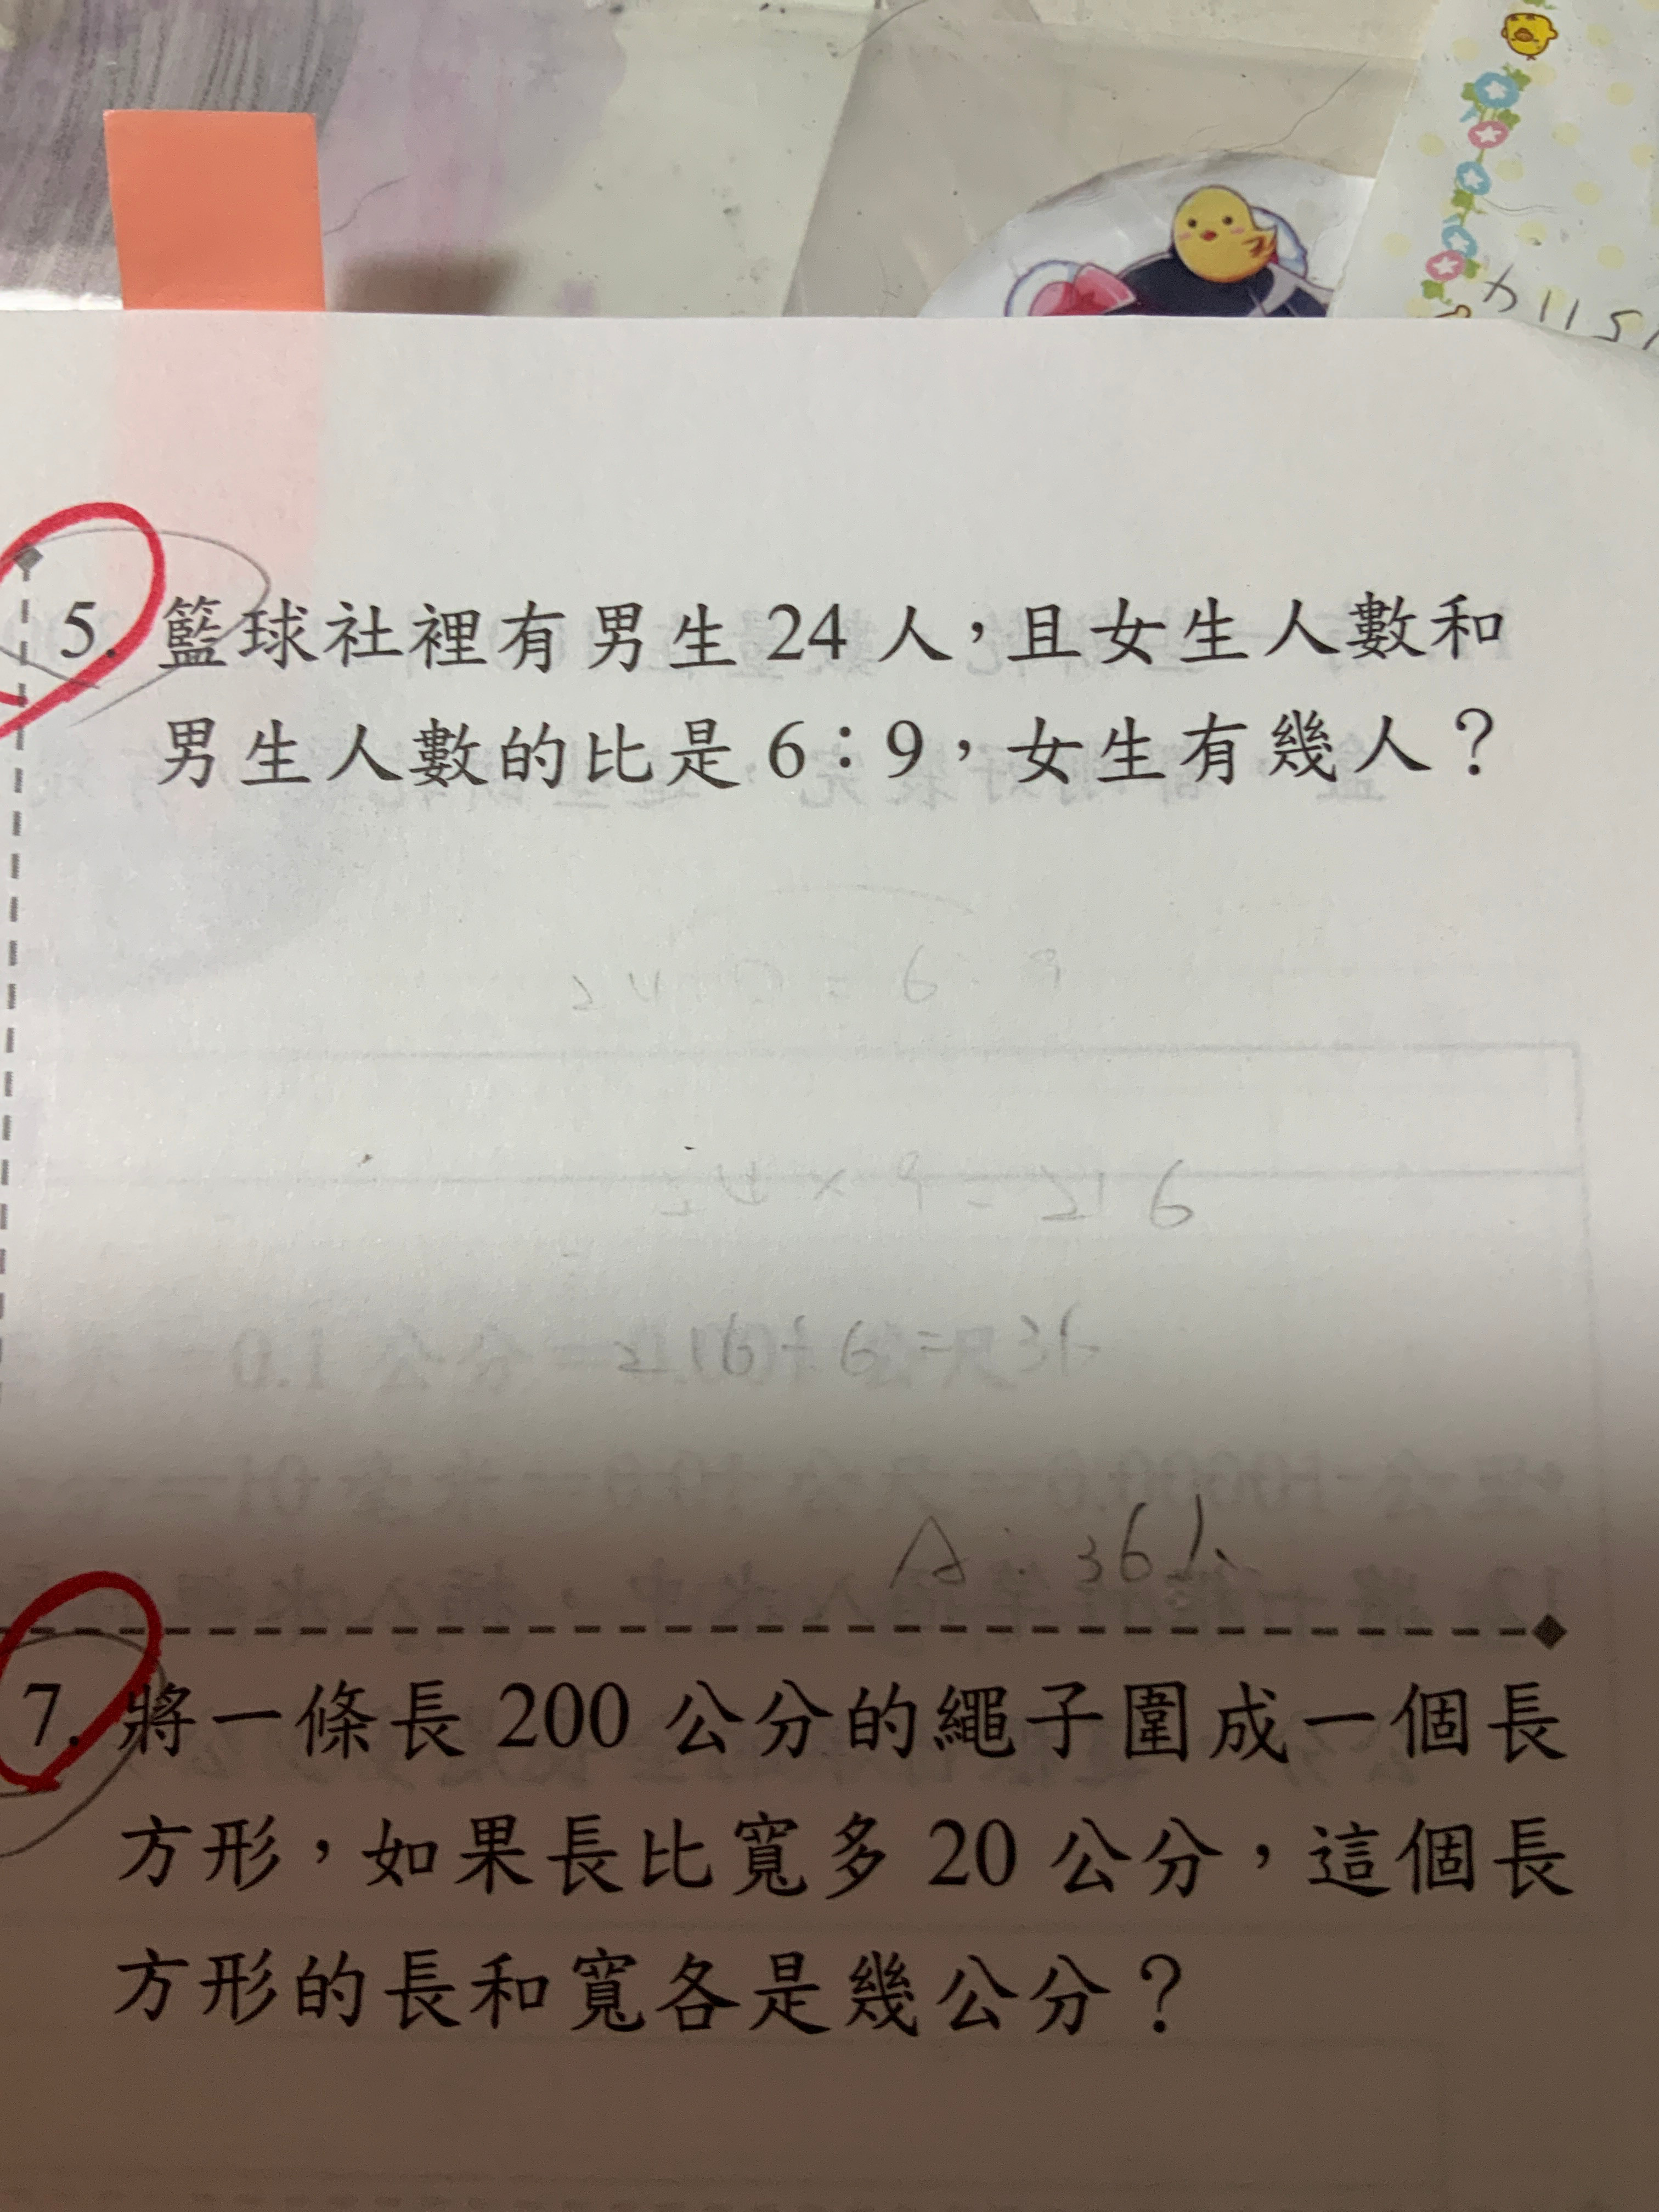 5. 籃球社裡有男生 24 人，且女生人數和
男生人數的比是 6：9，女生有幾人？
24 × 9 = 216
216 ÷ 6 = 36
A：36人
7. 將一條長 200 公分的繩子圍成一個長
方形，如果長比寬多 20 公分，這個長
方形的長和寬各是幾公分？